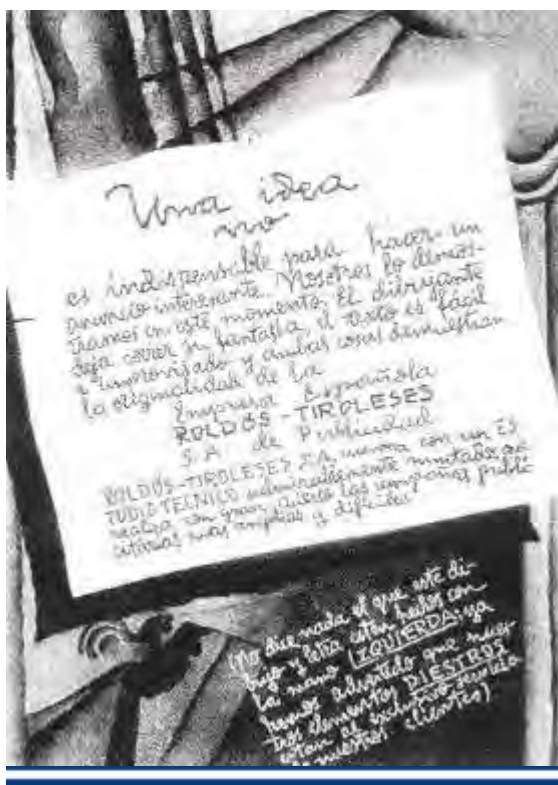 Una idea
no
es indispensable para hacer un
anuncio interesante. Nosotros lo demos-
tramos en este momento. El dibujante
deja correr su fantasía, el texto es fácil
e improvisado y ambas cosas demuestran
la originalidad de la
Empresa Española
ROLDÓS-TIROLESES
S.A. de Publicidad
ROLDÓS-TIROLESES S.A. cuenta con un ES
TUDIO TECNICO admirablemente montado que
realiza con gran acierto las campañas publi
citarias más amplias y difíciles
(No dice nada el que este di-
bujo y letra estén hechos con
la mano IZQUIERDA; ya
hemos advertido que nues
tros elementos DIESTROS
están al exclusivo servicio
de nuestros clientes)